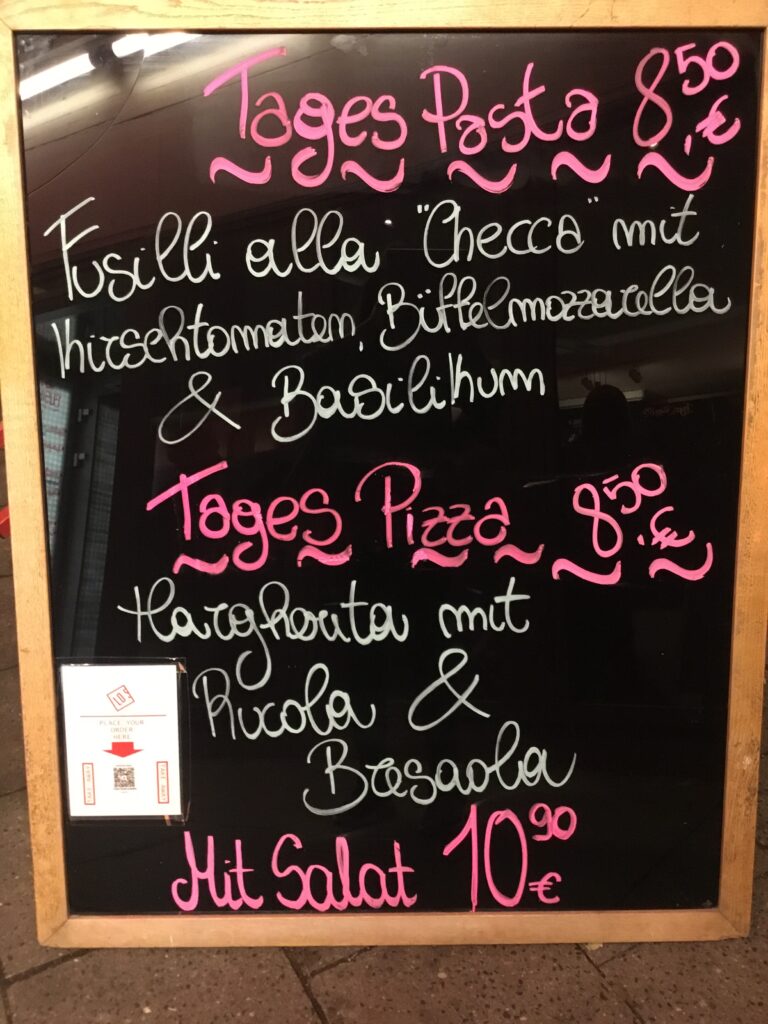 Tages Pasta 8,50 €
Fusilli alla "Checca" mit
Kirschtomaten, Büffelmozzarella
& Basilikum
Tages Pizza 8,50 €
Margherita mit
Rucola &
Bresaola
LOS
PLACE YOUR
ORDER
HERE
TAKE AWAY
Mit Salat 10 90 €